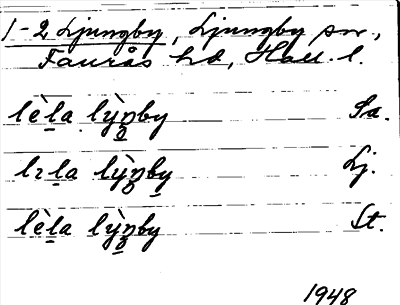 1-2 Ljungby, Ljungby sn,
Faurås hd, Hall. l.
lèla lỳŋby Sa.
lɪla lỳŋby Lj.
lèla lỳŋby St.
1948